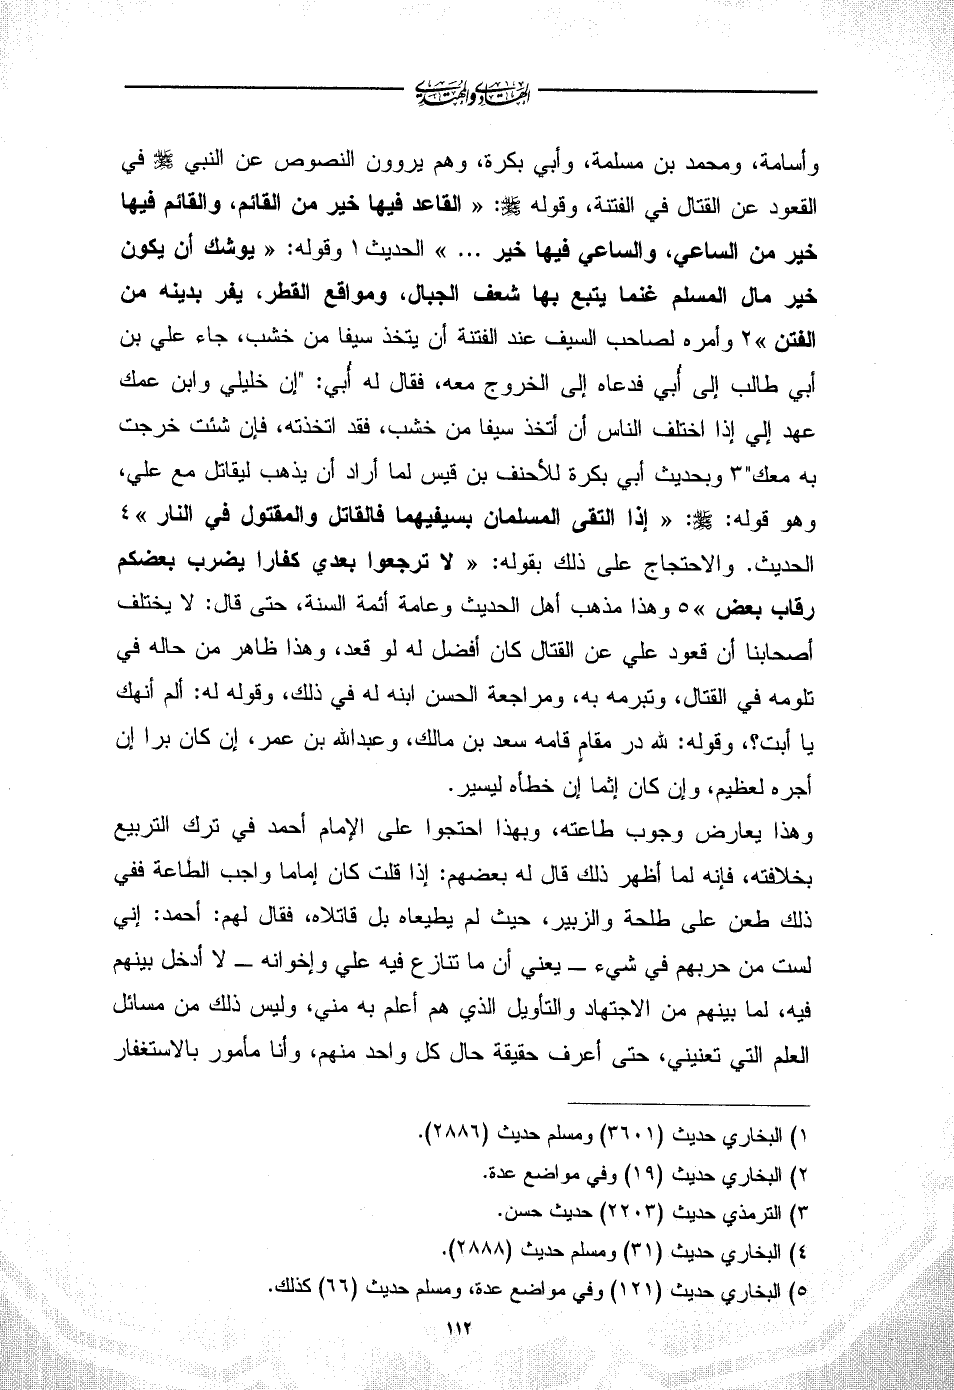 الهادي والمهتدي
وأسامة، ومحمد بن مسلمة، وأبي بكرة، وهم يروون النصوص عن النبي ﷺ في
القعود عن القتال في الفتنة، وقوله ﷺ: « القاعد فيها خير من القائم، والقائم فيها
خير من الساعي، والساعي فيها خير ... » الحديث١ وقوله: « يوشك أن يكون
خير مال المسلم غنما يتبع بها شعف الجبال، ومواقع القطر، يفر بدينه من
الفتن »٢ وأمره لصاحب السيف عند الفتنة أن يتخذ سيفا من خشب، جاء علي بن
أبي طالب إلى أُبي فدعاه إلى الخروج معه، فقال له أُبي: "إن خليلي وابن عمك
عهد إلي إذا اختلف الناس أن أتخذ سيفا من خشب، فقد اتخذته، فإن شئت خرجت
به معك"٣ وبحديث أبي بكرة للأحنف بن قيس لما أراد أن يذهب ليقاتل مع علي،
وهو قوله: ﷺ: « إذا التقى المسلمان بسيفيهما فالقاتل والمقتول في النار »٤
الحديث. والاحتجاج على ذلك بقوله: « لا ترجعوا بعدي كفارا يضرب بعضكم
رقاب بعض »٥ وهذا مذهب أهل الحديث وعامة أئمة السنة، حتى قال: لا يختلف
أصحابنا أن قعود علي عن القتال كان أفضل له لو قعد، وهذا ظاهر من حاله في
تلومه في القتال، وتبرمه به، ومراجعة الحسن ابنه له في ذلك، وقوله له: ألم أنهك
يا أبت؟، وقوله: لله در مقامٍ قامه سعد بن مالك، وعبدالله بن عمر، إن كان برا إن
أجره لعظيم، وإن كان إثما إن خطأه ليسير.
وهذا يعارض وجوب طاعته، وبهذا احتجوا على الإمام أحمد في ترك التربيع
بخلافته، فإنه لما أظهر ذلك قال له بعضهم: إذا قلت كان إماما واجب الطاعة ففي
ذلك طعن على طلحة والزبير، حيث لم يطيعاه بل قاتلاه، فقال لهم: أحمد: إني
لست من حربهم في شيء ــ يعني أن ما تنازع فيه علي وإخوانه ــ لا أدخل بينهم
فيه، لما بينهم من الاجتهاد والتأويل الذي هم أعلم به مني، وليس ذلك من مسائل
العلم التي تعنيني، حتى أعرف حقيقة حال كل واحد منهم، وأنا مأمور بالاستغفار
١) البخاري حديث (٣٦٠١) ومسلم حديث (٢٨٨٦).
٢) البخاري حديث (١٩) وفي مواضع عدة.
٣) الترمذي حديث (٢٢٠٣) حديث حسن.
٤) البخاري حديث (٣١) ومسلم حديث (٢٨٨٨).
٥) البخاري حديث (١٢١) وفي مواضع عدة، ومسلم حديث (٦٦) كذلك.
١١٢